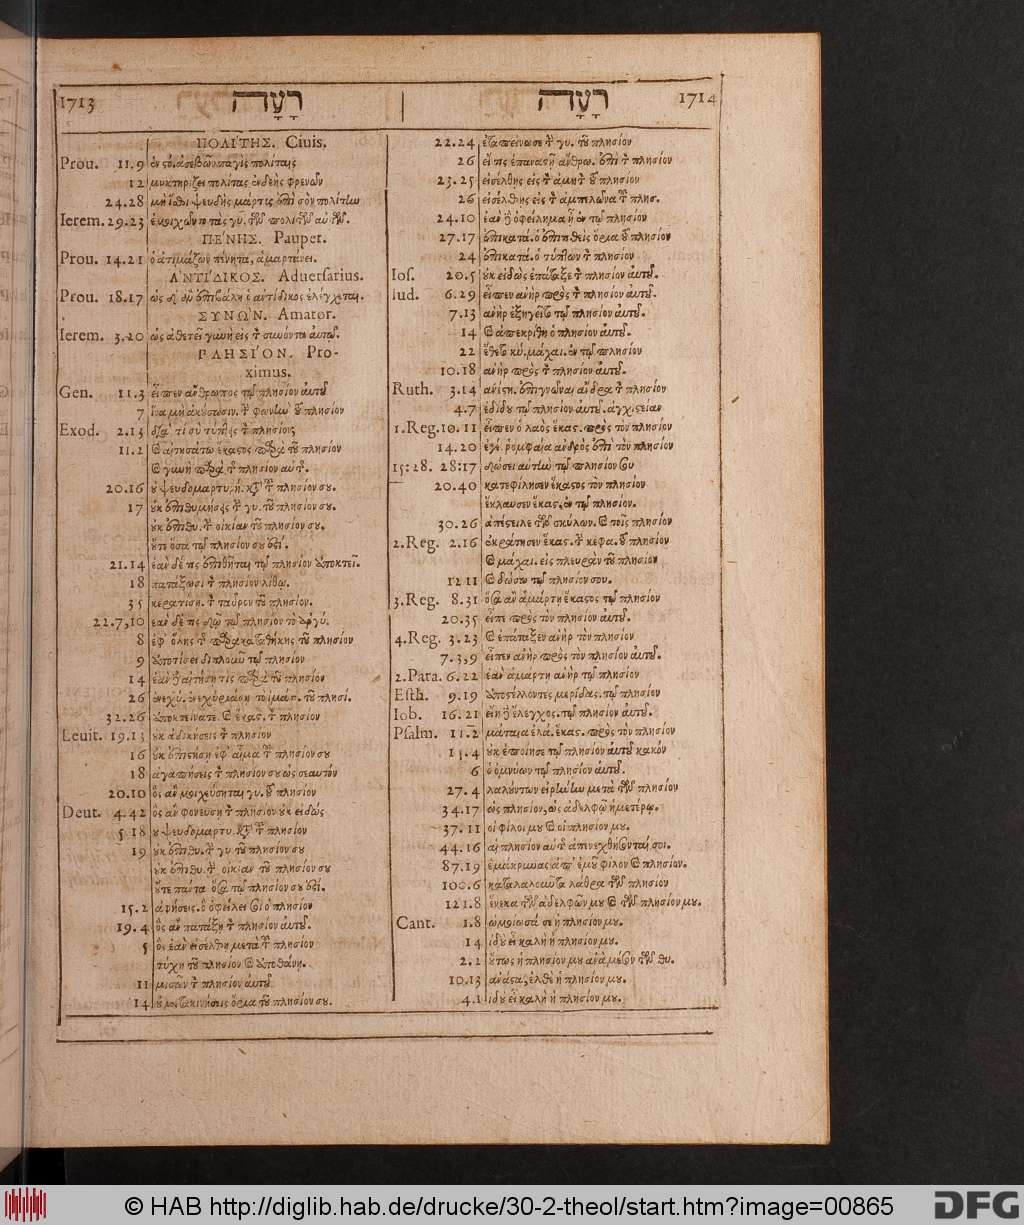 1713 רָעָה
ΠΟΛΙ΄ΤΗΣ. Ciuis.
Prou. 11.9 πολίταις
12 μυκτηρίζει πολίτας ἐνδεὴς φρενῶν
24.28 μὴ ἴσθι ψευδὴς μάρτις ἐπὶ σὸν πολίτην
Ierem. 29.23
ΠΕ΄ΝΗΣ. Pauper.
Prou. 14.21 ὁ ἀτιμάζων πένητα, ἁμαρτάνει.
Α΄ΝΤΙ΄ΔΙΚΟΣ. Aduersarius.
Prou. 18.17 ὡς δ᾽ ἂν ἐπιβάλῃ ὁ ἀντίδικος ἐλέγχεται.
ΣΥΝΩΝ. Amator.
Ierem. 3.20 ὡς ἀθετεῖ γυνὴ εἰς τ̀ συνόντα αὐτῷ.
ΠΛΗΣΙ΄ΟΝ. Pro-
ximus.
Gen. 11.3 εἶπεν ἄνθρωπος τῷ πλησίον αὐτοῦ
7 ἵνα μὴ ἀκούσωσιν. τ̀ φωνὴν τοῦ πλησίον
Exod. 2.13 διατί σὺ τύπτεις τ̀ πλησίον;
11.2 καὶ αἰτησάτω ἕκαστος παρὰ τοῦ πλησίον
καὶ γυνὴ παρὰ τ̀ πλησίον αὐτ̀.
20.16 οὐ ψευδομαρτυ. κτ̀ τοῦ πλησίον σου.
17 οὐκ ἐπιθυμήσεις τ̀ γυ. τοῦ πλησίον σου.
οὐκ ἐπιθυ. τ̀ οἰκίαν τοῦ πλησίον σου.
οὔτε ὅσα τῷ πλησίον σου ἐστί.
21.14 ἐὰν δέ τις ἐπιθῆται τῷ πλησίον ἀποκτεῖ.
18 πατάξωσι τ̀ πλησίον λίθῳ.
35 κερατίσῃ. τ̀ ταῦρον τοῦ πλησίον.
22.7,10 ἐὰν δέ τις δῷ τῷ πλησίον τὸ ἀργύ.
8 ἐφ᾽ ὅλης τ̀ παρακαταθήκης τοῦ πλησίον
9 ἀποτίσει διπλοῦν τῷ πλησίον
14 ἐὰν ἢ αἰτήσῃ τις παρὰ τοῦ πλησίον
26 ἐνεχύ. ἐνεχυράσῃ τὸ ἱμάτ. τοῦ πλησί.
32.26 ἀποκτείνατε. καὶ ἕκας. τ̀ πλησίον
Leuit. 19.13 οὐκ ἀδικήσεις τ̀ πλησίον
16 οὐκ ἐπιστήσῃ ἐφ᾽ αἷμα τ̀ πλησίον σου
18 ἀγαπήσεις τ̀ πλησίον σου ὡς σεαυτόν
20.10 ὃς ἂν μοιχεύσηται γυ. τοῦ πλησίον
Deut. 4.42 ὃς ἂν φονεύσῃ τ̀ πλησίον οὐκ εἰδώς
5.18 οὐ ψευδομαρτυ. κτ̀ τ̀ πλησίον
19 οὐκ ἐπιθυ. τ̀ γυ. τοῦ πλησίον σου
οὐκ ἐπιθυ. τ̀ οἰκίαν τοῦ πλησίον σου
οὔτε πάντα ὅσα τῷ πλησίον σου ἐστί.
15.2 ἀφήσεις. ὃ ὀφείλει σοι ὁ πλησίον
19.4 ὃς ἂν πατάξῃ τ̀ πλησίον αὐτοῦ.
5 ὃς ἐὰν εἰσέλθῃ μετὰ τ̀ πλησίον
τύχῃ τοῦ πλησίον καὶ ἀποθάνῃ.
11 μισῶν τ̀ πλησίον αὐτοῦ
14 οὐ μετακινήσεις ὅρια τοῦ πλησίον σου.
רָעָה 1714
22.24 ἐταπείνωσε τ̀ γυ. τοῦ πλησίον
26 εἴ τις ἐπαναστῇ ἄνθρω. ἐπὶ τ̀ πλησίον
23.25 εἰσέλθῃς εἰς τ̀ ἀμητ̀ τοῦ πλησίον
26 εἰσέλθῃς εἰς τ̀ ἀμπελῶνα τ̀ πλησ.
24.10 ἐὰν ᾖ ὀφείλημα ᾖ ἐν τῷ πλησίον
27.17 ἐπικατά. ὁ μετατιθεὶς ὅρια τοῦ πλησίον
24 ἐπικατά. ὁ τύπτων τ̀ πλησίον
Ios. 20.5 οὐκ εἰδὼς ἐπάταξε τ̀ πλησίον αὐτοῦ.
Iud. 6.29 εἶπεν ἀνὴρ πρὸς τ̀ πλησίον αὐτοῦ.
7.13 ἀνὴρ ἐξηγεῖτο τῷ πλησίον αὐτοῦ.
14 καὶ ἀπεκρίθη ὁ πλησίον αὐτοῦ.
22 ἔθετο κύ. μάχαι. ἐν τῷ πλησίον
10.18 ἀνὴρ πρὸς τ̀ πλησίον αὐτοῦ.
Ruth. 3.14 ἀνέστη. ἐπιγνῶναι ἄνδρα τ̀ πλησίον
4.7 ἐδίδου τῷ πλησίον αὐτοῦ. ἀγχιστείαν
1.Reg. 10.11 εἶπεν ὁ λαὸς ἕκας. πρὸς τὸν πλησίον
14.20 ἐγέ. ῥομφαία ἀνδρὸς ἐπὶ τὸν πλησίον
15:28. 28:17 δώσει αὐτὴν τῷ πλησίον σου
20.40 κατεφίλησεν ἕκαστος τὸν πλησίον
ἔκλαυσεν ἕκας. ἐν τῷ πλησίον.
30.26 ἀπέστειλε τῶν σκύλων. καὶ τοῖς πλησίον
2.Reg. 2.16 ἐκράτησεν ἕκας. τ̀ κεφα. τοῦ πλησίον
καὶ μάχαι. εἰς πλευρὰν τοῦ πλησίον
12 11 καὶ δώσω τῷ πλησίον σου.
3.Reg. 8.31 ὅσα ἂν ἁμάρτῃ ἕκαστος τῷ πλησίον
20.35 εἶπε πρὸς τὸν πλησίον αὐτοῦ.
4.Reg. 3.23 καὶ ἐπάταξεν ἀνὴρ τὸν πλησίον
7.3,9 εἶπεν ἀνὴρ πρὸς τὸν πλησίον αὐτοῦ.
2.Para. 6.22 ἐὰν ἁμάρτῃ ἀνὴρ τῷ πλησίον
Esth. 9.19 ἀποστέλλοντες μερίδας. τῷ πλησίον
Iob. 16.21 εἴη ἢ ἔλεγχος. τῷ πλησίον αὐτοῦ.
Psalm. 11.2 μάταια ἐλά. ἕκας. πρὸς τὸν πλησίον
15.4 οὐκ ἐποίησε τῷ πλησίον αὐτοῦ κακόν
6 ὁ ὀμνύων τῷ πλησίον αὐτοῦ.
27.4 λαλούντων εἰρήνην μετὰ τῶν πλησίον
34.17 ὡς πλησίον, ὡς ἀδελφῷ ἡμετέρῳ.
37.11 οἱ φίλοι μου καὶ οἱ πλησίον μου.
44.16 αἱ πλησίον αὐτ̀ ἀπενεχθήσονταί σοι.
87.19 ἐμάκρυνας ἀπ᾽ ἐμοῦ φίλον καὶ πλησίον.
100.6 καταλαλοῦντα λάθρα τῶν πλησίον
121.8 ἕνεκα τῶν ἀδελφῶν μου καὶ τῶν πλησίον μου.
Cant. 1.8 ὡμοίωσά σε ἡ πλησίον μου.
14 ἰδοὺ εἶ καλὴ ἡ πλησίον μου.
2.2 οὕτως ἡ πλησίον μου ἀνὰ μέσον τῶν θυ.
10.13 ἀνάστα, ἐλθὲ ἡ πλησίον μου.
4.1 ἰδοὺ εἶ καλὴ ἡ πλησίον μου.
© HAB http://diglib.hab.de/drucke/30-2-theol/start.htm?image=00865
DFG